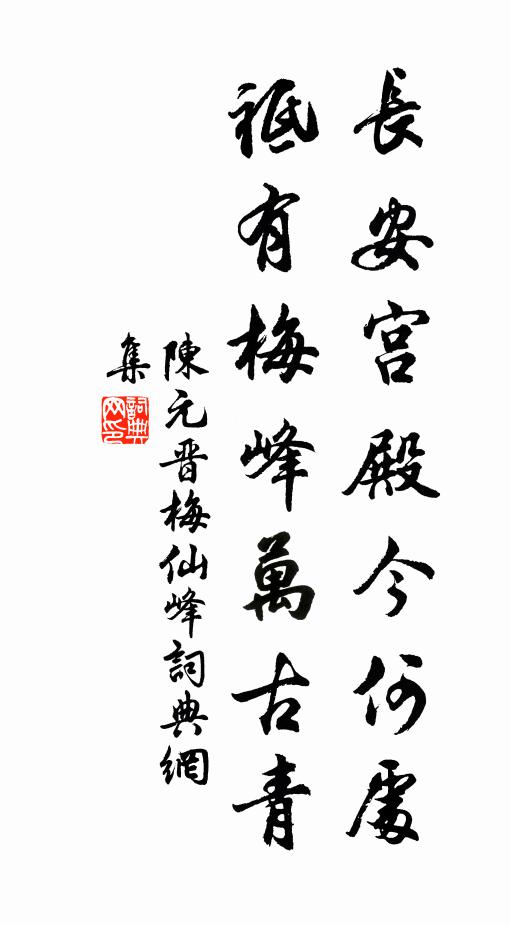 長安宮殿今何處
祗有梅峰萬古青
陳元晋梅仙峰詞典網
集
詞典
网印